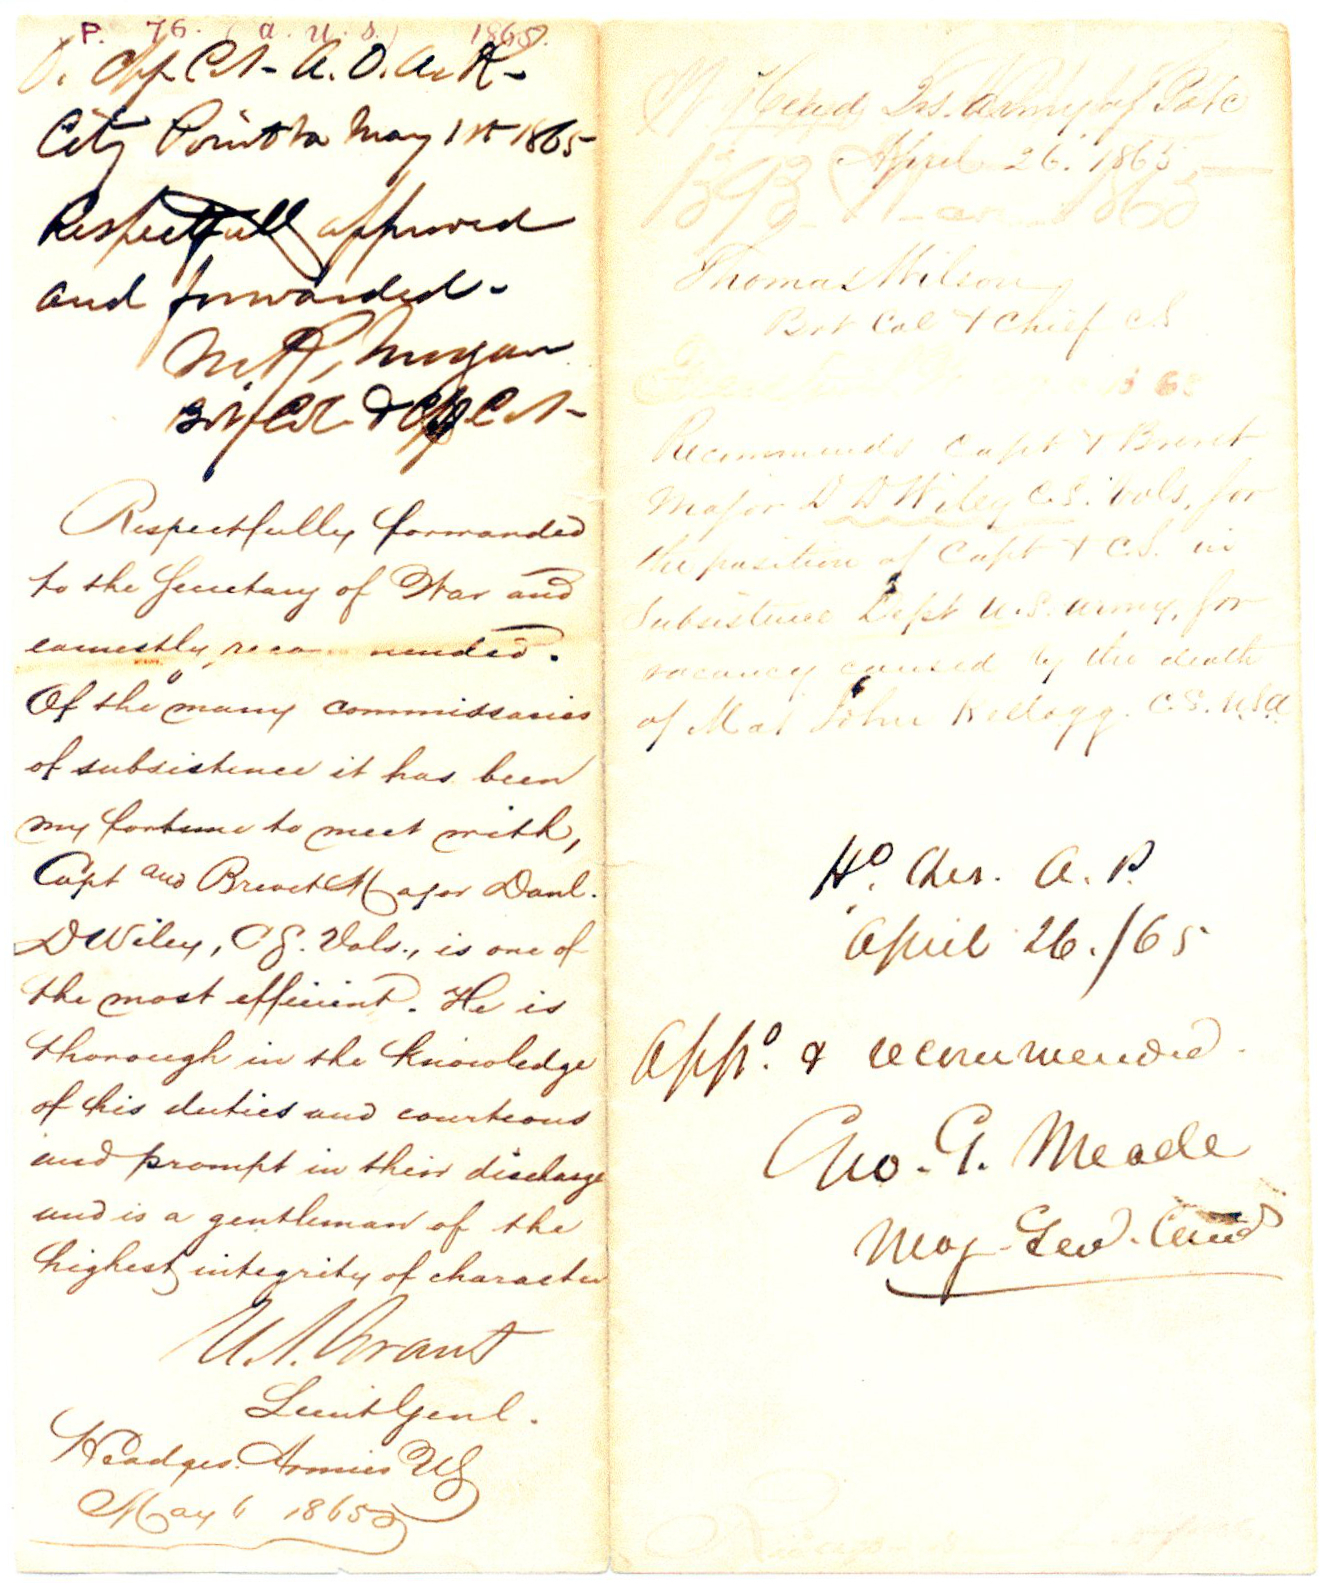 P. 76. (A. U. S.) 1865.
O. Chf. C.S. A. O. A. & R-
City Point Va May 1st 1865
Respectfully approved
and forwarded-
M. R. Morgan
Bvt. Col. & Chf C.S-
Respectfully forwarded
to the Secretary of War and
earnestly recommended.
Of the many commissaries
of subsistence it has been
my fortune to meet with,
Capt and Brevet Major Danl.
D Wiley, C.S. Vols., is one of
the most efficient. He is
thorough in the knowledge
of his duties and courteous
and prompt in their discharge
and is a gentleman of the
highest integrity of character
U. S. Grant
Lieut Genl.
Headqrs. Armies US
May 6 1865
Head Qrs. Army of Potc
April 26. 1865
1865
Thomas Wilson
Bvt Col & Chief C.S
Recommends Capt & Brevet
Major D D Wiley C.S. Vols, for
the position of Capt & C.S. in
Subsistence Dept U.S. Army, for
vacancy caused by the death
of Maj John Kellogg. C.S. U.S.A.
Hd. Qrs. A. P.
April 26./65
Appd. & recommended.
Geo. G. Meade
Maj. Genl. Comd